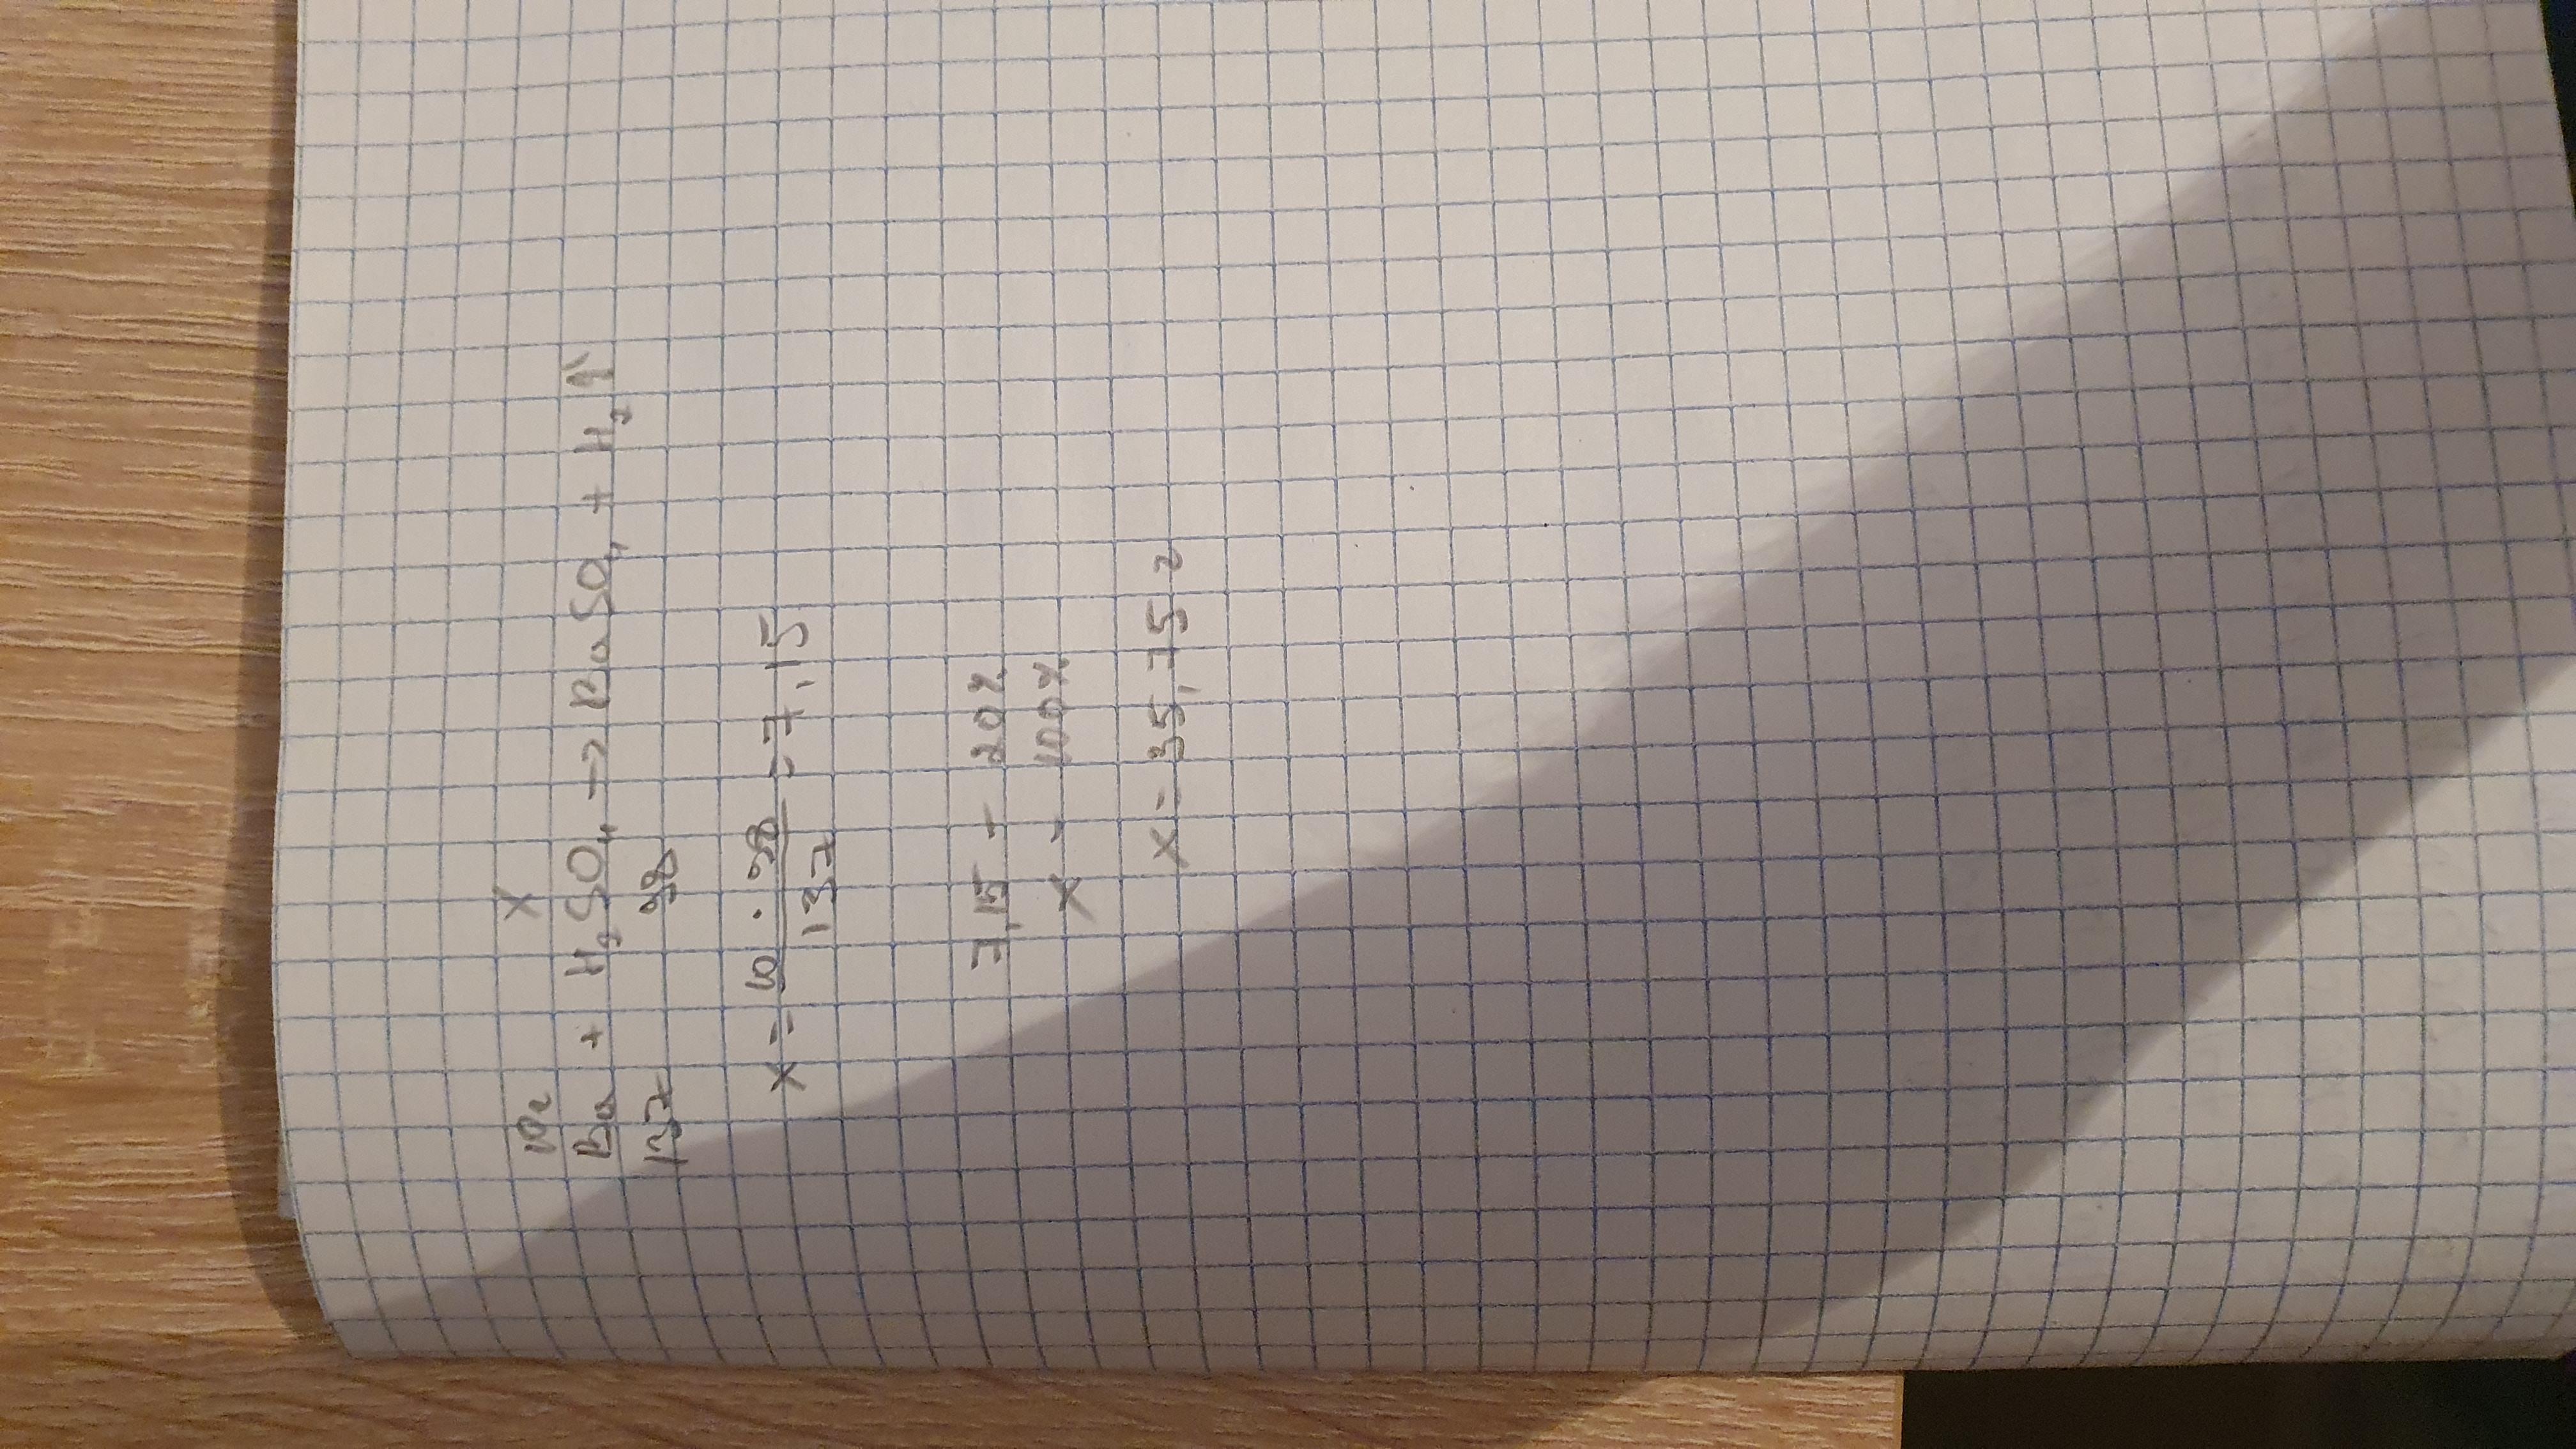 10г X
Ba + H₂SO₄ → BaSO₄ + H₂↑
137 98
x = 10 · 98 / 137 = 7,15
7,15 – 20%
x – 100%
x = 35,75 г